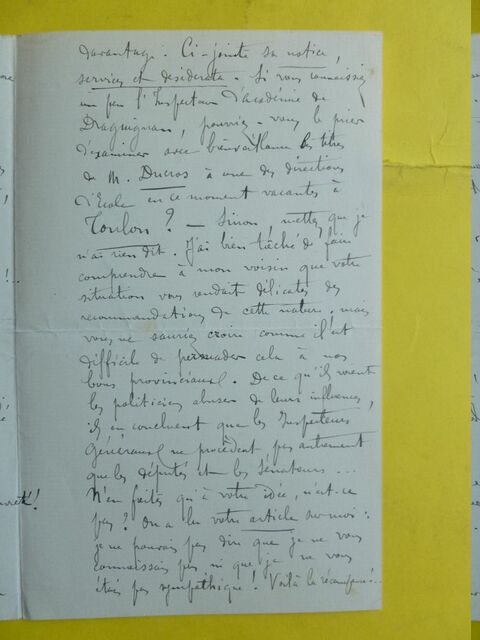 davantage. Ci-jointe sa notice,
services et desiderata. Si vous connaissiez
un peu l'Inspecteur d'académie de
Draguignan, pourriez-vous le prier
d'examiner avec bienveillance les titres
de M. Ducros à une des directions
d'Ecole en ce moment vacantes à
Toulon ? — Sinon, mettez que je
n'ai rien dit. J'ai bien tâché de faire
comprendre à mon voisin que votre
situation vous rendait délicates des
recommandations de cette nature, mais
vous ne sauriez croire comme il est
difficile de persuader cela à nos
bons provinciaux. De ce qu'ils voient
les politiciens abuser de leurs influences,
ils en concluent que les Inspecteurs
Généraux ne procèdent pas autrement
que les députés et les sénateurs ...
N'en faites qu'à votre idée, n'est-ce
pas ? On a lu votre article sur moi :
je ne pouvais pas dire que je ne vous
connaissais pas ni que je ne vous
étais pas sympathique ! Voilà la récompense !..